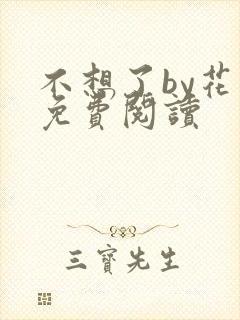 不想了by花
免費閱讀
三寶先生